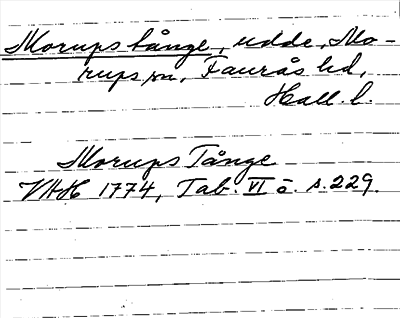 Morups tånge, udde, Mo-
rups sn, Faurås hd,
Hall. l.
Morups Tånge
VAH 1774, Tab. VI å s. 229.